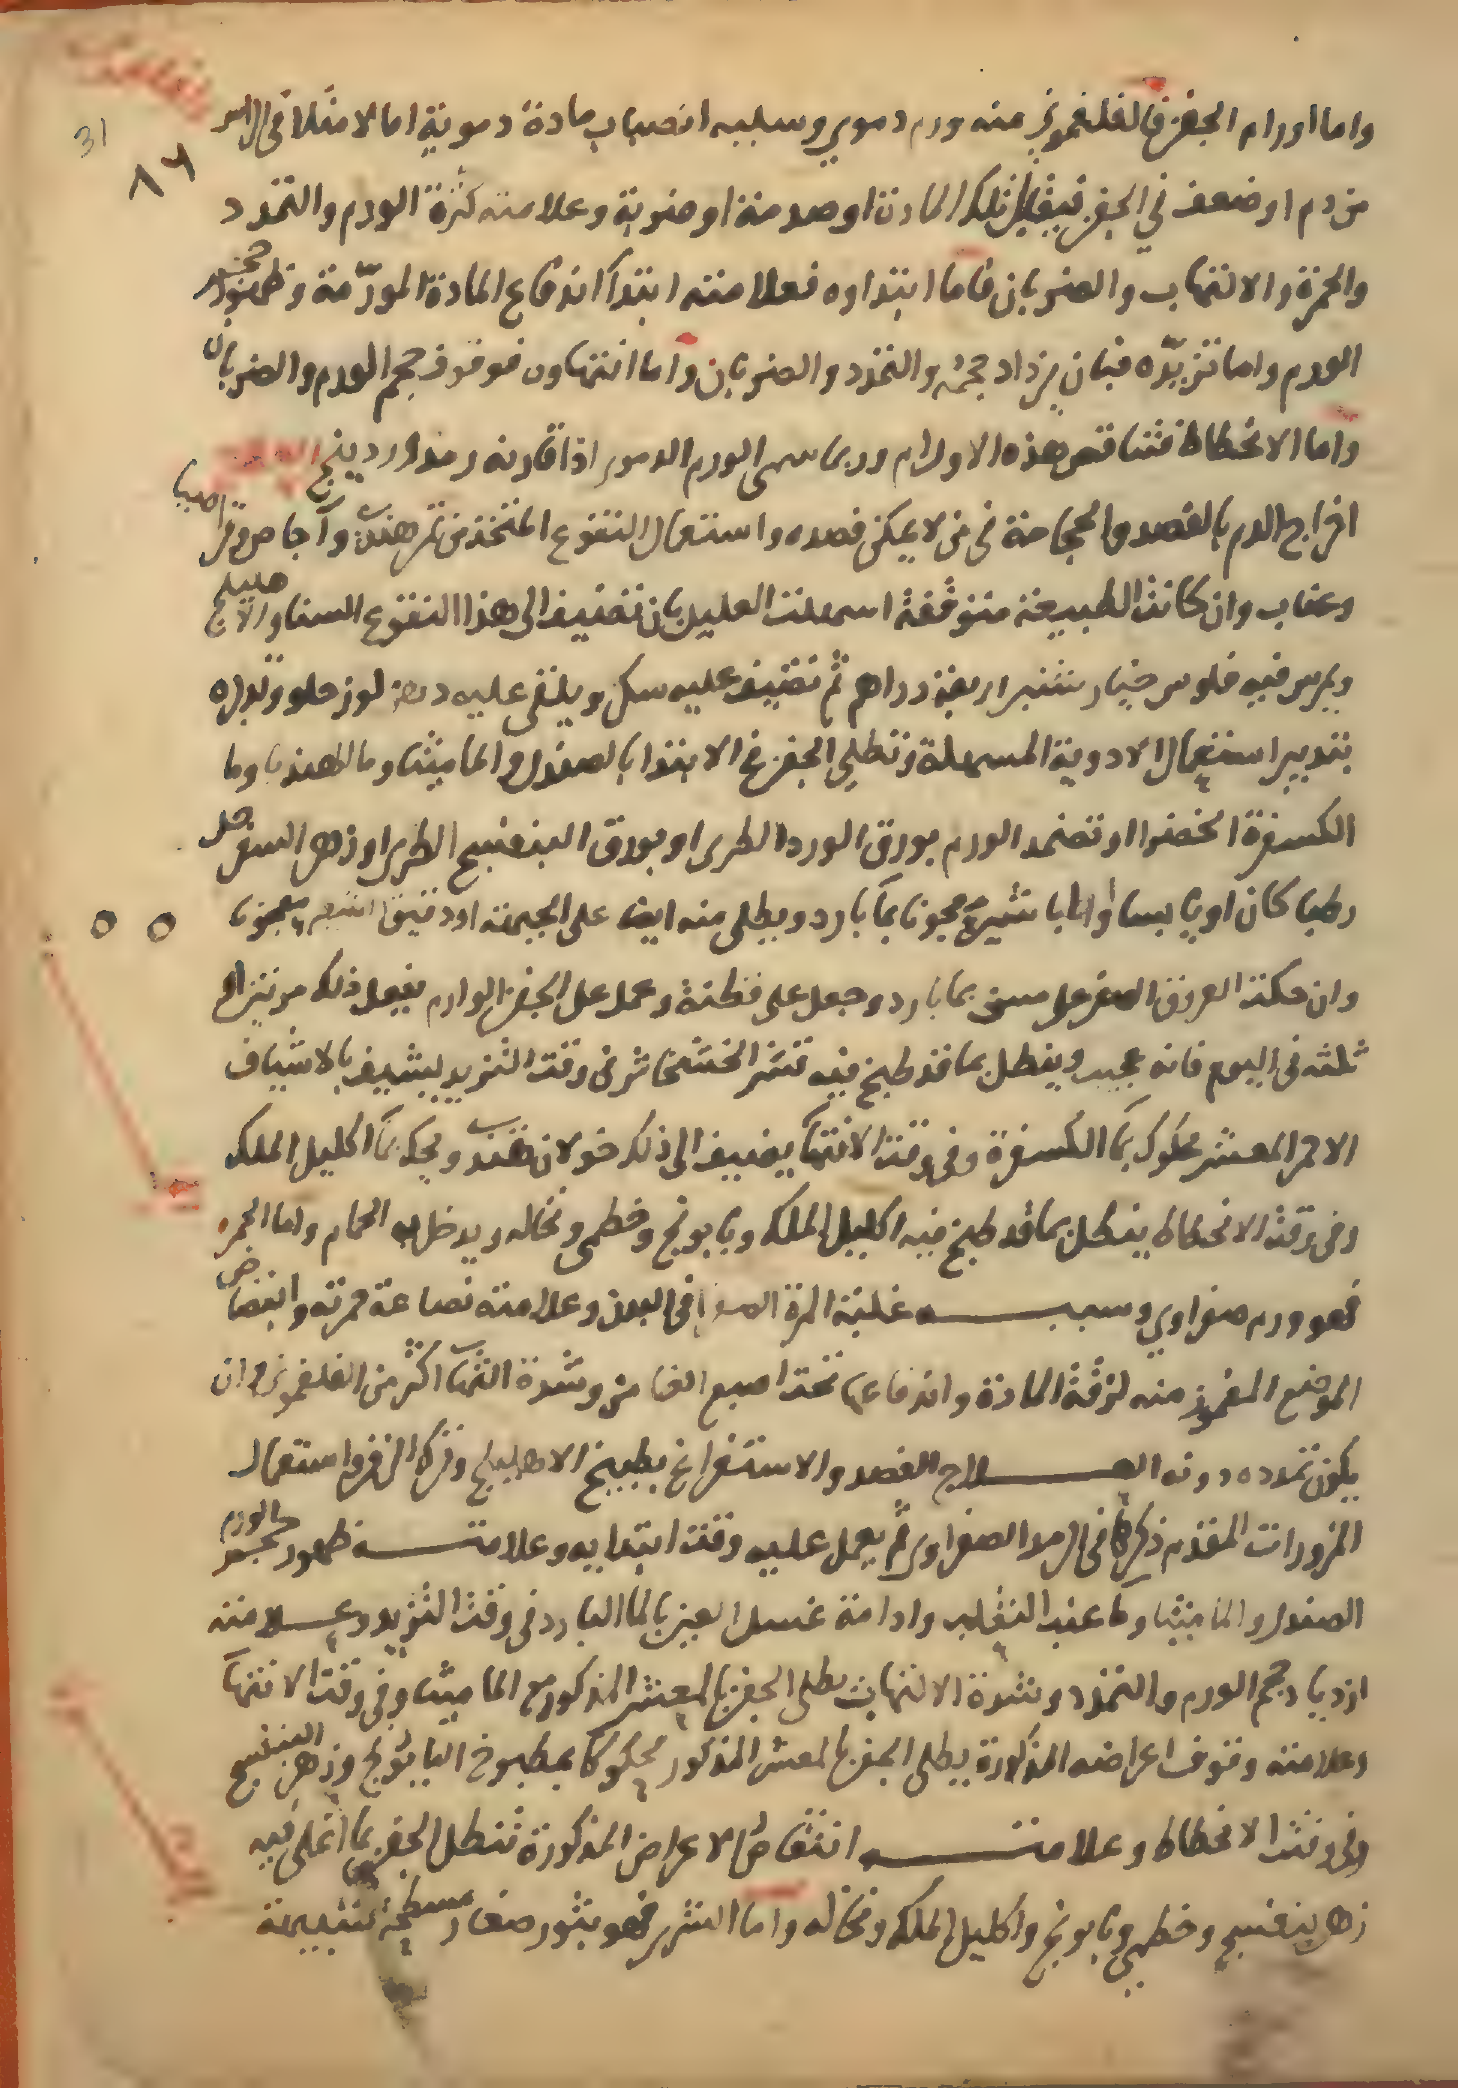 31
٨٦
واما اورام الجفن فالفلغموني منه ورم دموي وسببه انصباب مادة دموية اما لامتلا في الراس
من دم او ضعف في الجفن فيقبل تلك المادة او صدمة او ضربة وعلامته كثرة الورم والتمدد
والحمرة والالتهاب والضربان فاما ابتداوه فعلامته ابتدآ اندفاع المادة المورّمة وظهور حجم
الورم واما تزيّده فبان يزداد حجمه والتمدد والضربان وآما انتهاوه فوقوف حجم الورم والضربان
واما الانحطاط فتناقص هذه الاورام وربما سمي الورم الدموي اذا قارنه رمد وردينج
اخراج الدم بالفصد والحجامة في من لا يمكن فصده واستعمال النقوع المتخذ من تمر هندي وآجاص وقراصيا
وعناب وان كانت الطبيعة متوقفة اسهلت العليل بان تضيف الى هذا النقوع السنا والاهليلج
ويمرس فيه فلوس خيار شنبر اربعة دراهم ثم تضيف عليه سكر ويلقى عليه دهن لوز حلو وتدبره
بتدبير استعمال الادوية المسهلة وتطلي الجفن في الابتدا بالصندل والماميثا وما الهندبا وما
الكسفرة الخضرا او تضمد الورم بورق الورد الطري او بورق البنفسج الطري او زهر السفرجل
رطبا كان او يابسا والطباشير معجونا بمآ بارد ويطلى منه ايضا على الجبهة او دقيق الشعير معجونا
وان حكت العروق الصفر على مسن بما بارد وجعل على قطنة وعمل على الجفن الوارم يفعل ذلك مرتين او
ثلثه في اليوم فانه عجيب وينطل بما قد طبخ فيه قشر الخشخاش وفي وقت التزيد يشيف بالاشياف
الاحمر المعشر محكوك بمآ الكسفرة وفي وقت الانتهآ يضيف الى ذلك خولان هندي ويحك بمآ اكليل الملك
وفي وقت الانحطاط ينطل بما قد طبخ فيه اكليل الملك وبابونج وخطمي ونخاله ويدخل الحمام واما الحمره
فهو ورم صفراوي وسببه غلبة المرة الصفرا في البدن وعلامته نصاعة حمرته وابيضاض
الموضع المغموز منه لرقة المادة واندفاعها تحت اصبع الغامز وشدة التهاب اكثر من الفلغموني وان
يكون تمدده دونه العلاج الفصد والاستفراغ بطبيخ الاهليلج وترك الزفر واستعمال
المزورات المقدم ذكرها في الرمد الصفراوي ثم يعمل عليه وقت ابتدايه وعلامته ظهور حجم الورم
الصندل والماميثا وما عنب الثعلب وادامة غسل العين بالما البارد وفي وقت التزيد وعلامته
ازدياد حجم الورم والتمدد وشدة الالتهاب يطلى الجفن بالمعشر المذكور مع الماميثا وفي وقت الانتهآ
وعلامته وقوف اعراضه المذكورة يطلى الجفن بالمعشر المذكور محكوكا بمطبوخ البابونج وزهر البنفسج
وفي وقت الانحطاط وعلامته انتقاص الاعراض المذكورة تنطل الجفن بما اغلي فيه
زهر بنفسج وخطمي وبابونج واكليل الملك ونخاله واما الشري فهو بثور صغار مسطحة شبيهة